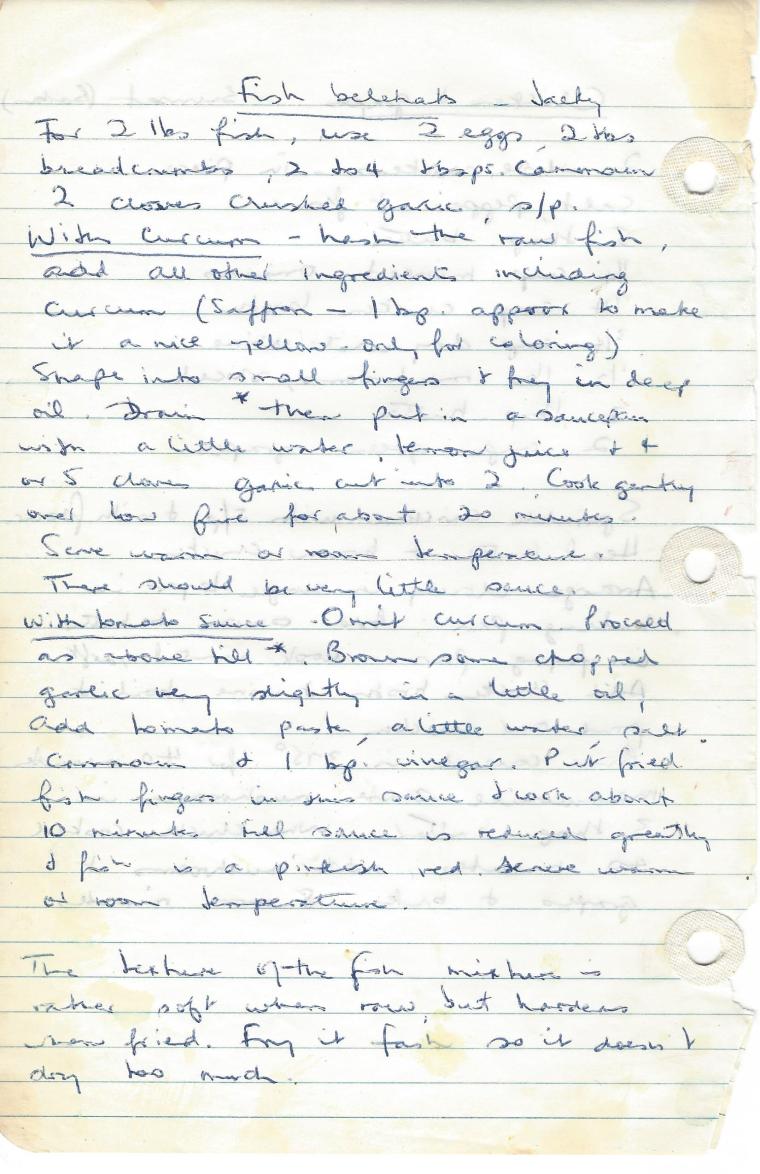 Fish belehats - Jacky
For 2 lbs fish, use 2 eggs, 2 tbs
breadcrumbs, 2 to 4 tbsps. Cammoun
2 cloves crushed garlic, s/p.
With Curcum - hash the raw fish,
add all other ingredients including
Curcum (Saffron - 1 tsp. approx to make
it a nice yellow. only for coloring)
Shape into small fingers & fry in deep
oil. Drain * then put in a saucepan
with a little water, lemon juice & 4
or 5 cloves garlic cut into 2. Cook gently
over low fire for about 20 minutes.
Serve warm or room temperature.
There should be very little sauce.
With tomato sauce - Omit curcum. Proceed
as above till *. Brown some chopped
garlic very slightly in a little oil,
Add tomato paste, a little water, salt.
Cammoun & 1 tsp. vinegar. Put fried
fish fingers in this sauce & cook about
10 minutes till sauce is reduced greatly
& fish is a pinkish red. Serve warm
or room temperature.
The texture of the fish mixture is
rather soft when raw, but hardens
when fried. Fry it fast so it doesn't
dry too much.